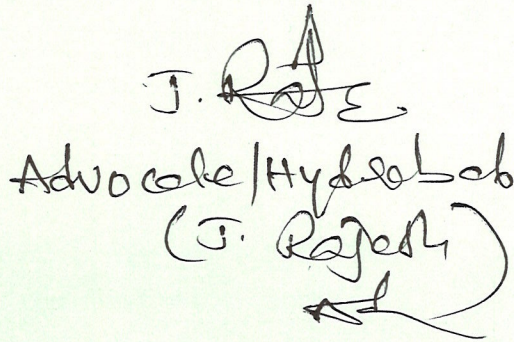 J. Raj
Advocate/Hyderabad
(J. Rajesh)